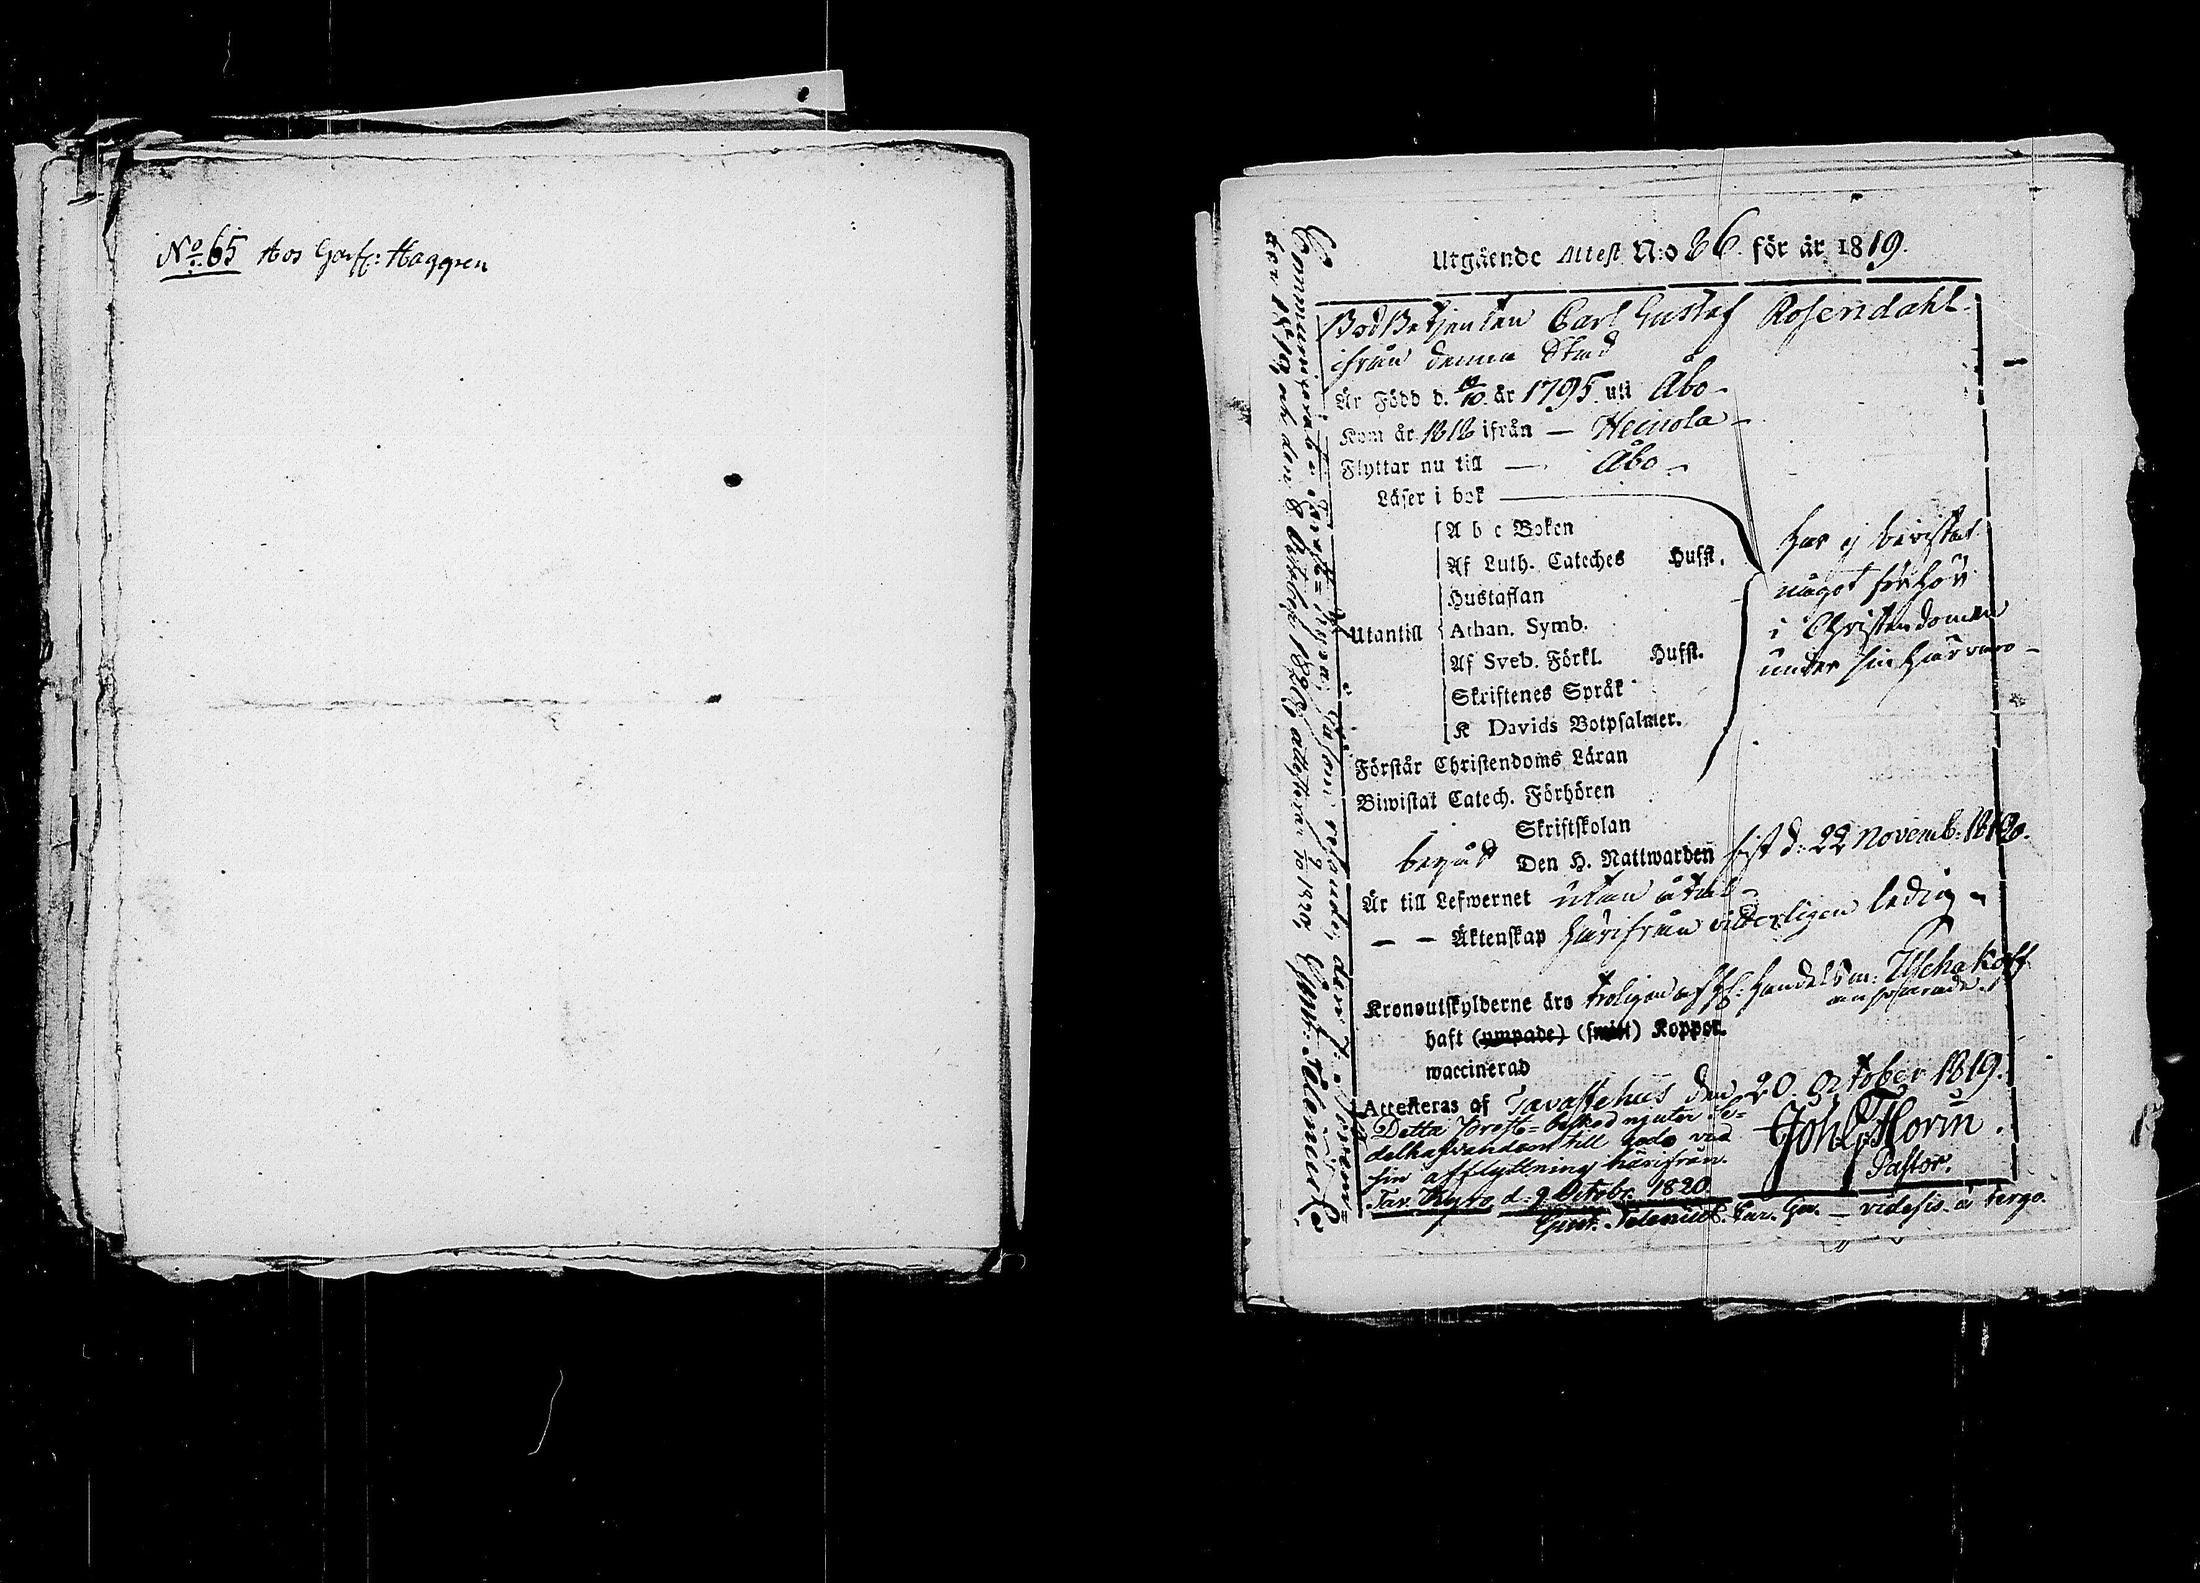 No 65 Hos Garf: Haggren
Utgående Attest N:o 26 för år 1819.
BodBetjenten Carl Gustaf Rosendahl
ifrån denna Stad
Är Född d. 19/10 år 1795 uti Åbo
Kom år 1818 ifrån — Heinola —
Flyttar nu till — Åbo —
Läser i bok
Utantill
A b c Boken
Af Luth. Cateches Hufst.
Hustaflan
Athan. Symb.
Af Sveb. Förkl. Hufst.
Skriftenes Språk
K Davids Botpsalmer.
har ej bevistat
något förhör
i Christendomen
under sin härvaro —
Förstår Christendoms Läran
Biwistat Catech. Förhören
Skriftskolan
begåd Den H. Nattwarden sist d: 22 Novemb: 1818.
Är till Lefwernet utan åtal
— — Äktenskap härifrån veterligen ledig
Kronoutskylderne äro troligen af H: Handelsm: Uschakoff
ansvarade.
haft (ympade) (smitt) Koppor.
waccinerad
Attesteras af Tavastehus den 20. October 1819.
Joh: G: Florin.
Pastor.
Detta Prest-besked njuter Se-
delhafvanden till godo vid
sin afflyttning härifrån.
Tav. Kyro d: 9 Octobr. 1820
Gust. Polenius. — videsis à tergo.
Communicerat i Tavast-Kyro,
den 8 October 1820, attesterar 9/10 1820, Gust: Polenius